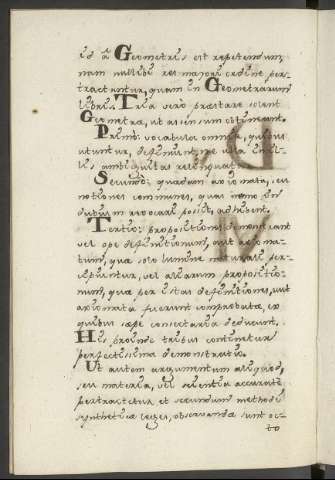 id à Geometris est repetendum,
nam nullibi res majori ordine per-
tractantur, quam in Geometrarum
libris. Tria vero præstare solent
Geometræ, ut assensum obtineant.
Primò: vocabula omnia, quibus
utuntur, definiunt, ne ulla in il-
lis ambiguitas relinquatur.
Secundò: quædam axiomata, seu
notiones communes, quas nemo in
dubium revocare possit, adhibent.
Tertiò: propositiones demonstrant
vel ope definitionum, aut axioma-
tum, quæ solo lumine naturali per-
cipiuntur, vel aliarum propositio-
num, quæ per istas definitiones, aut
axiomata fuerunt comprobatæ, ex
quibus sæpe consectaria deducunt.
His proinde tribus continetur
perfectissima demonstratio.
Ut autem argumentum aliquod,
seu materia, vel scientia accuratè
pertractetur, et secundum methodi
syntheticæ leges, observanda sunt oc-
to